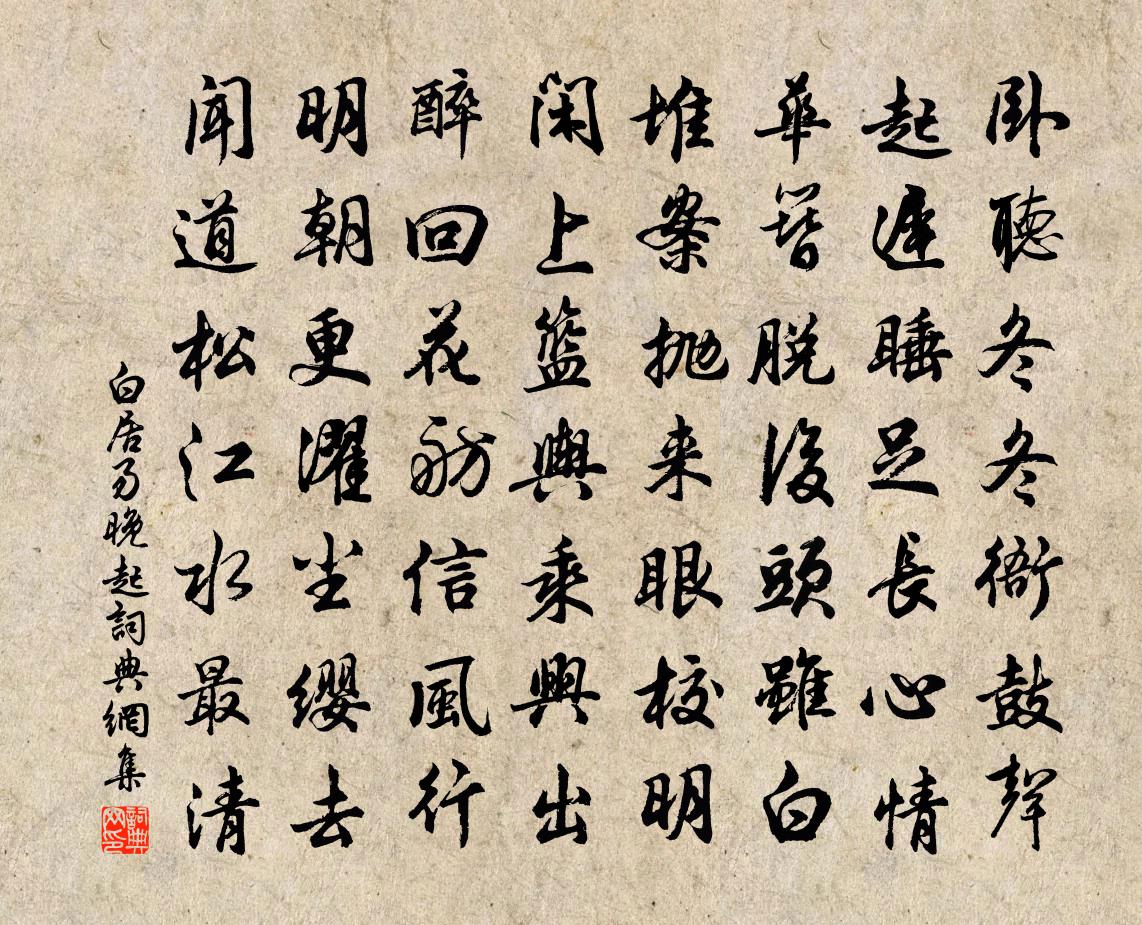 卧聽冬冬衙鼓聲
起遲睡足長心情
華簪脱後頭雖白
堆案抛来眼校明
閑上籃輿乘興出
醉回花舫信風行
明朝更濯尘纓去
聞道松江水最清
白居易晚起詞典網集
詞典网印